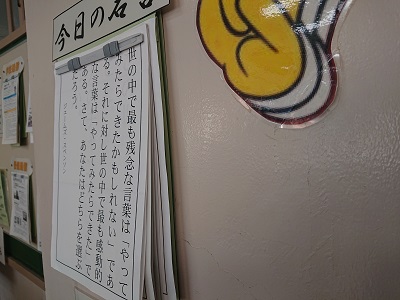 今日の名言
世の中で最も残念な言葉は「やって
みたらできたかもしれない」であ
る。それに対し世の中で最も感動的
な言葉は「やってみたらできた」で
ある。さて、あなたはどちらを選ぶ
だろう。